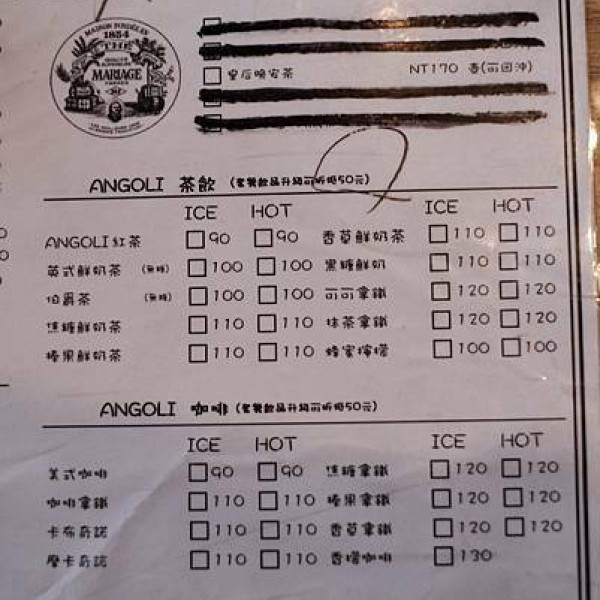 MAISON FONDÉE EN
1854
THE
MARIAGE
皇后晚宴茶 NT170 壺(可回沖)
ANGOLI 茶飲 (套餐飲品升級可折抵50元)
ICE HOT ICE HOT
ANGOLI紅茶 90 90 香草鮮奶茶 110 110
英式鮮奶茶 (無糖) 100 100 黑糖鮮奶 110 110
伯爵茶 (無糖) 100 100 可可拿鐵 120 120
焦糖鮮奶茶 110 110 抹茶拿鐵 120 120
榛果鮮奶茶 110 110 蜂蜜檸檬 100 100
ANGOLI 咖啡 (套餐飲品升級可折抵50元)
ICE HOT ICE HOT
美式咖啡 90 90 焦糖拿鐵 120 120
咖啡拿鐵 110 110 榛果拿鐵 120 120
卡布奇諾 110 110 香草拿鐵 120 120
摩卡奇諾 110 110 香橙咖啡 130